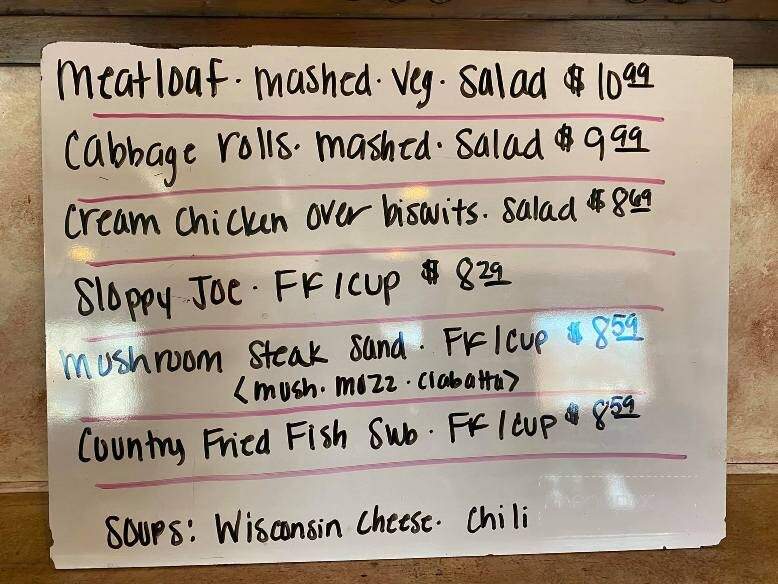 Meatloaf · mashed · veg · salad $ 10 99
Cabbage rolls · mashed · salad $ 9 99
Cream Chicken over biscuits · salad $ 8 69
Sloppy Joe · FF / cup $ 8 29
Mushroom Steak Sand · FF / cup $ 8 59
< mush · mozz · ciabatta >
Country Fried Fish Sub · FF / cup $ 8 59
Soups: Wisconsin Cheese · Chili